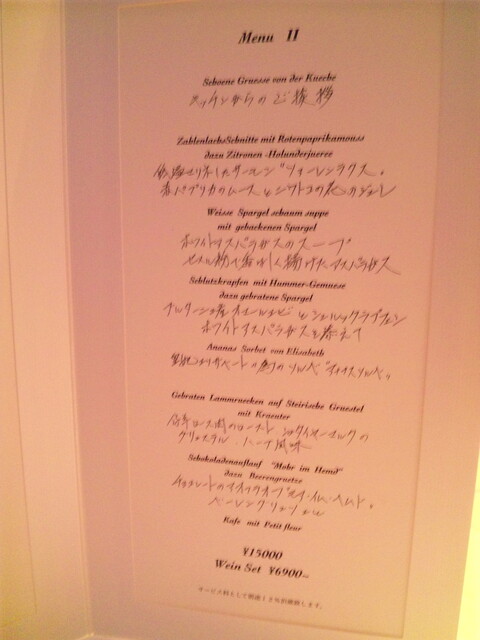 Menu II
Schoene Gruesse von der Kueche
キッチンからのご挨拶
ZahlenlachsSchnitte mit Rotenpaprikamouss
dazu Zitronen -Holunderjueree
サーモン
赤パプリカのムースとニワトコの花のジュレ
Weisse Spargel schaum suppe
mit gebackenen Spargel
ホワイトアスパラガスのスープ
アスパラガス
Schlutzkrapfen mit Hummer-Gemuese
dazu gebratene Spargel
オマールエビとシュルックラプフェン
ホワイトアスパラガスを添えて
Ananas Sorbet von Elisabeth
Gebraten Lammruecken auf Steirische Gruestel
mit Kraenter
仔羊ロース肉のロースト シュタイヤーマルクの
グリュステル ハーブ風味
Schokoladenauflauf "Mohr im Hemd"
dazu Beerengruetze
ベーレングリュッツェ
Kafe mit Petit fleur
¥15000
Wein Set ¥6900~
サービス料として別途12%頂戴致します。